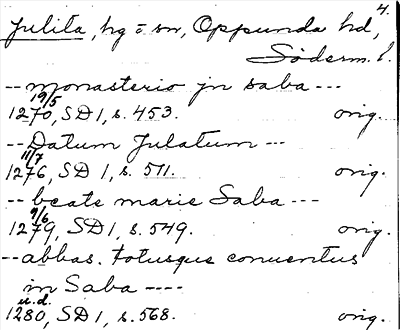 4.
Julita, hg o sn, Oppunda hd,
Söderm. l.
-- monasterio jn saba ---
19/5
1270, SD 1, s. 453. orig.
-- Datum Julatum ---
11/7
1276, SD 1, s. 511. orig.
-- beate marie Saba ---
9/6
1279, SD 1, s. 549. orig.
-- abbas. totusque conuentus
in Saba ----
u.d.
1280, SD 1, s. 568. orig.